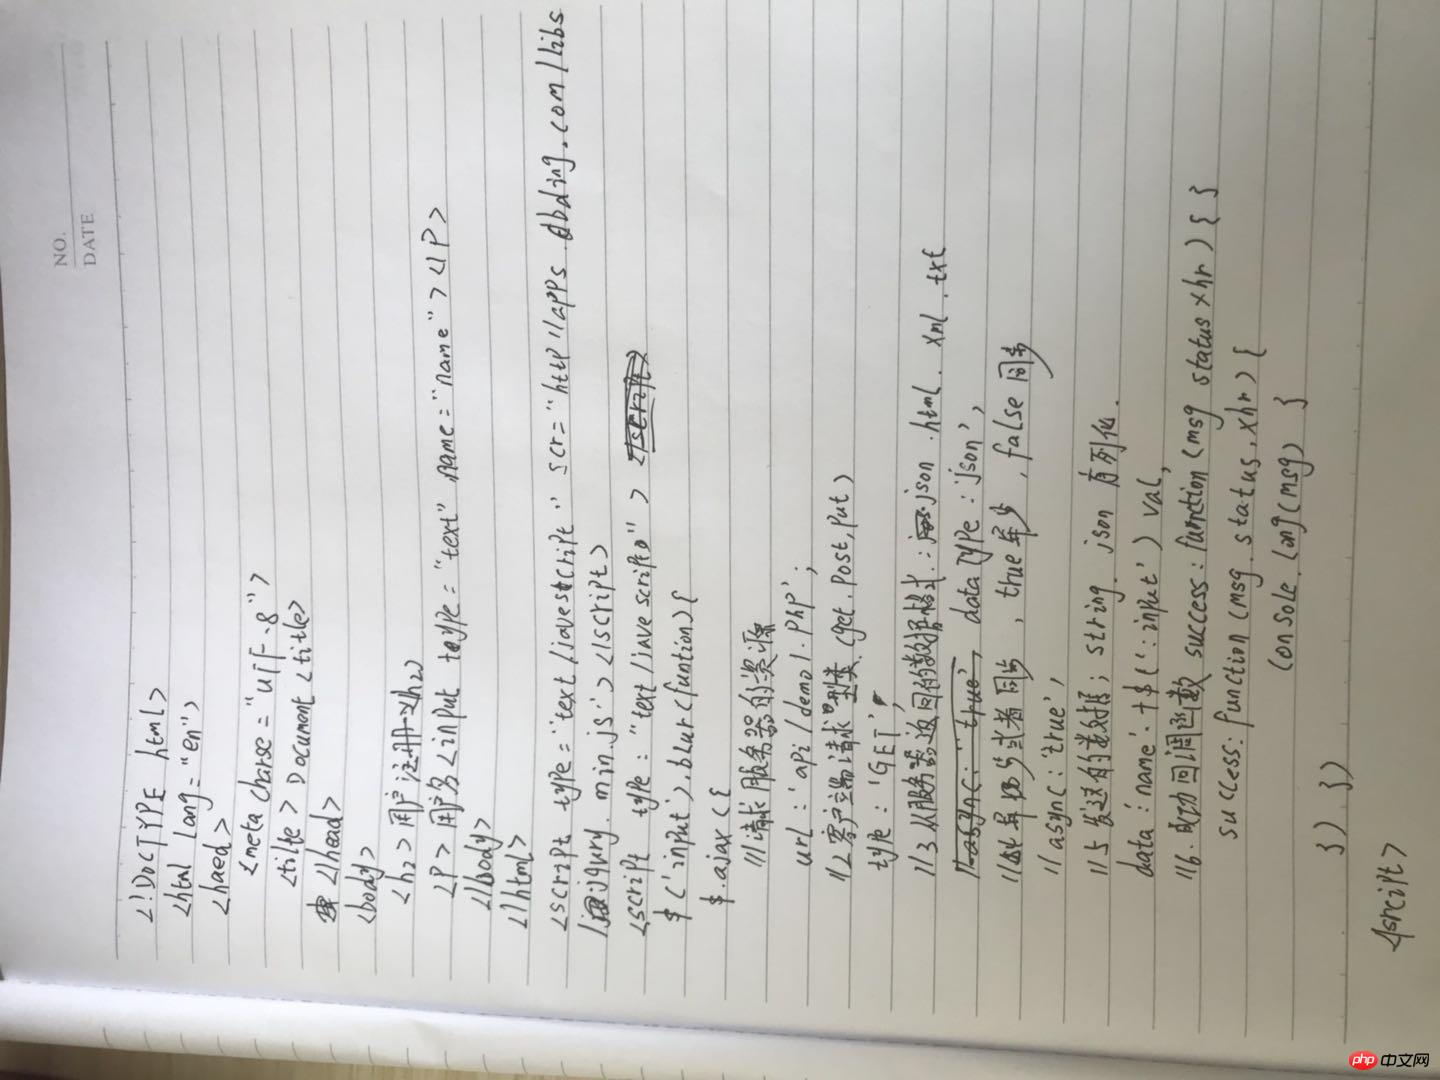 NO.
DATE
<!DOCTYPE html>
<html lang="en">
<haed>
<meta charse="utf-8">
<tilte> Document <title>
</head>
<body>
<h2> 用户注册</h2>
<P> 用户名<input type="text" name="name"></P>
</body>
</html>
<script type="text/javascript" scr="http//apps.bdimg.com/libs
/jqury.min.js"></script>
<script type="text/javescript">
$('input').blur(funtion){
$.ajax({
//1请求服务器的资源
url:'api/demo1.php';
//2客户端请求类型(get.post,put)
type:'GET',
//3从服务器返回的数据格式:json.html.xml.txt
//async:'true', dataType:'json',
//4异步或者同步,true异步,false同步
//async:'true',
//5发送的数据;string.json有列化.
data:'name'+$(':input')val,
//6.成功回调函数 success:function(msg status xhr){ }
success:function(msg.status,xhr){
console.long(msg) }
}) })
</srcipt>
php 中文网